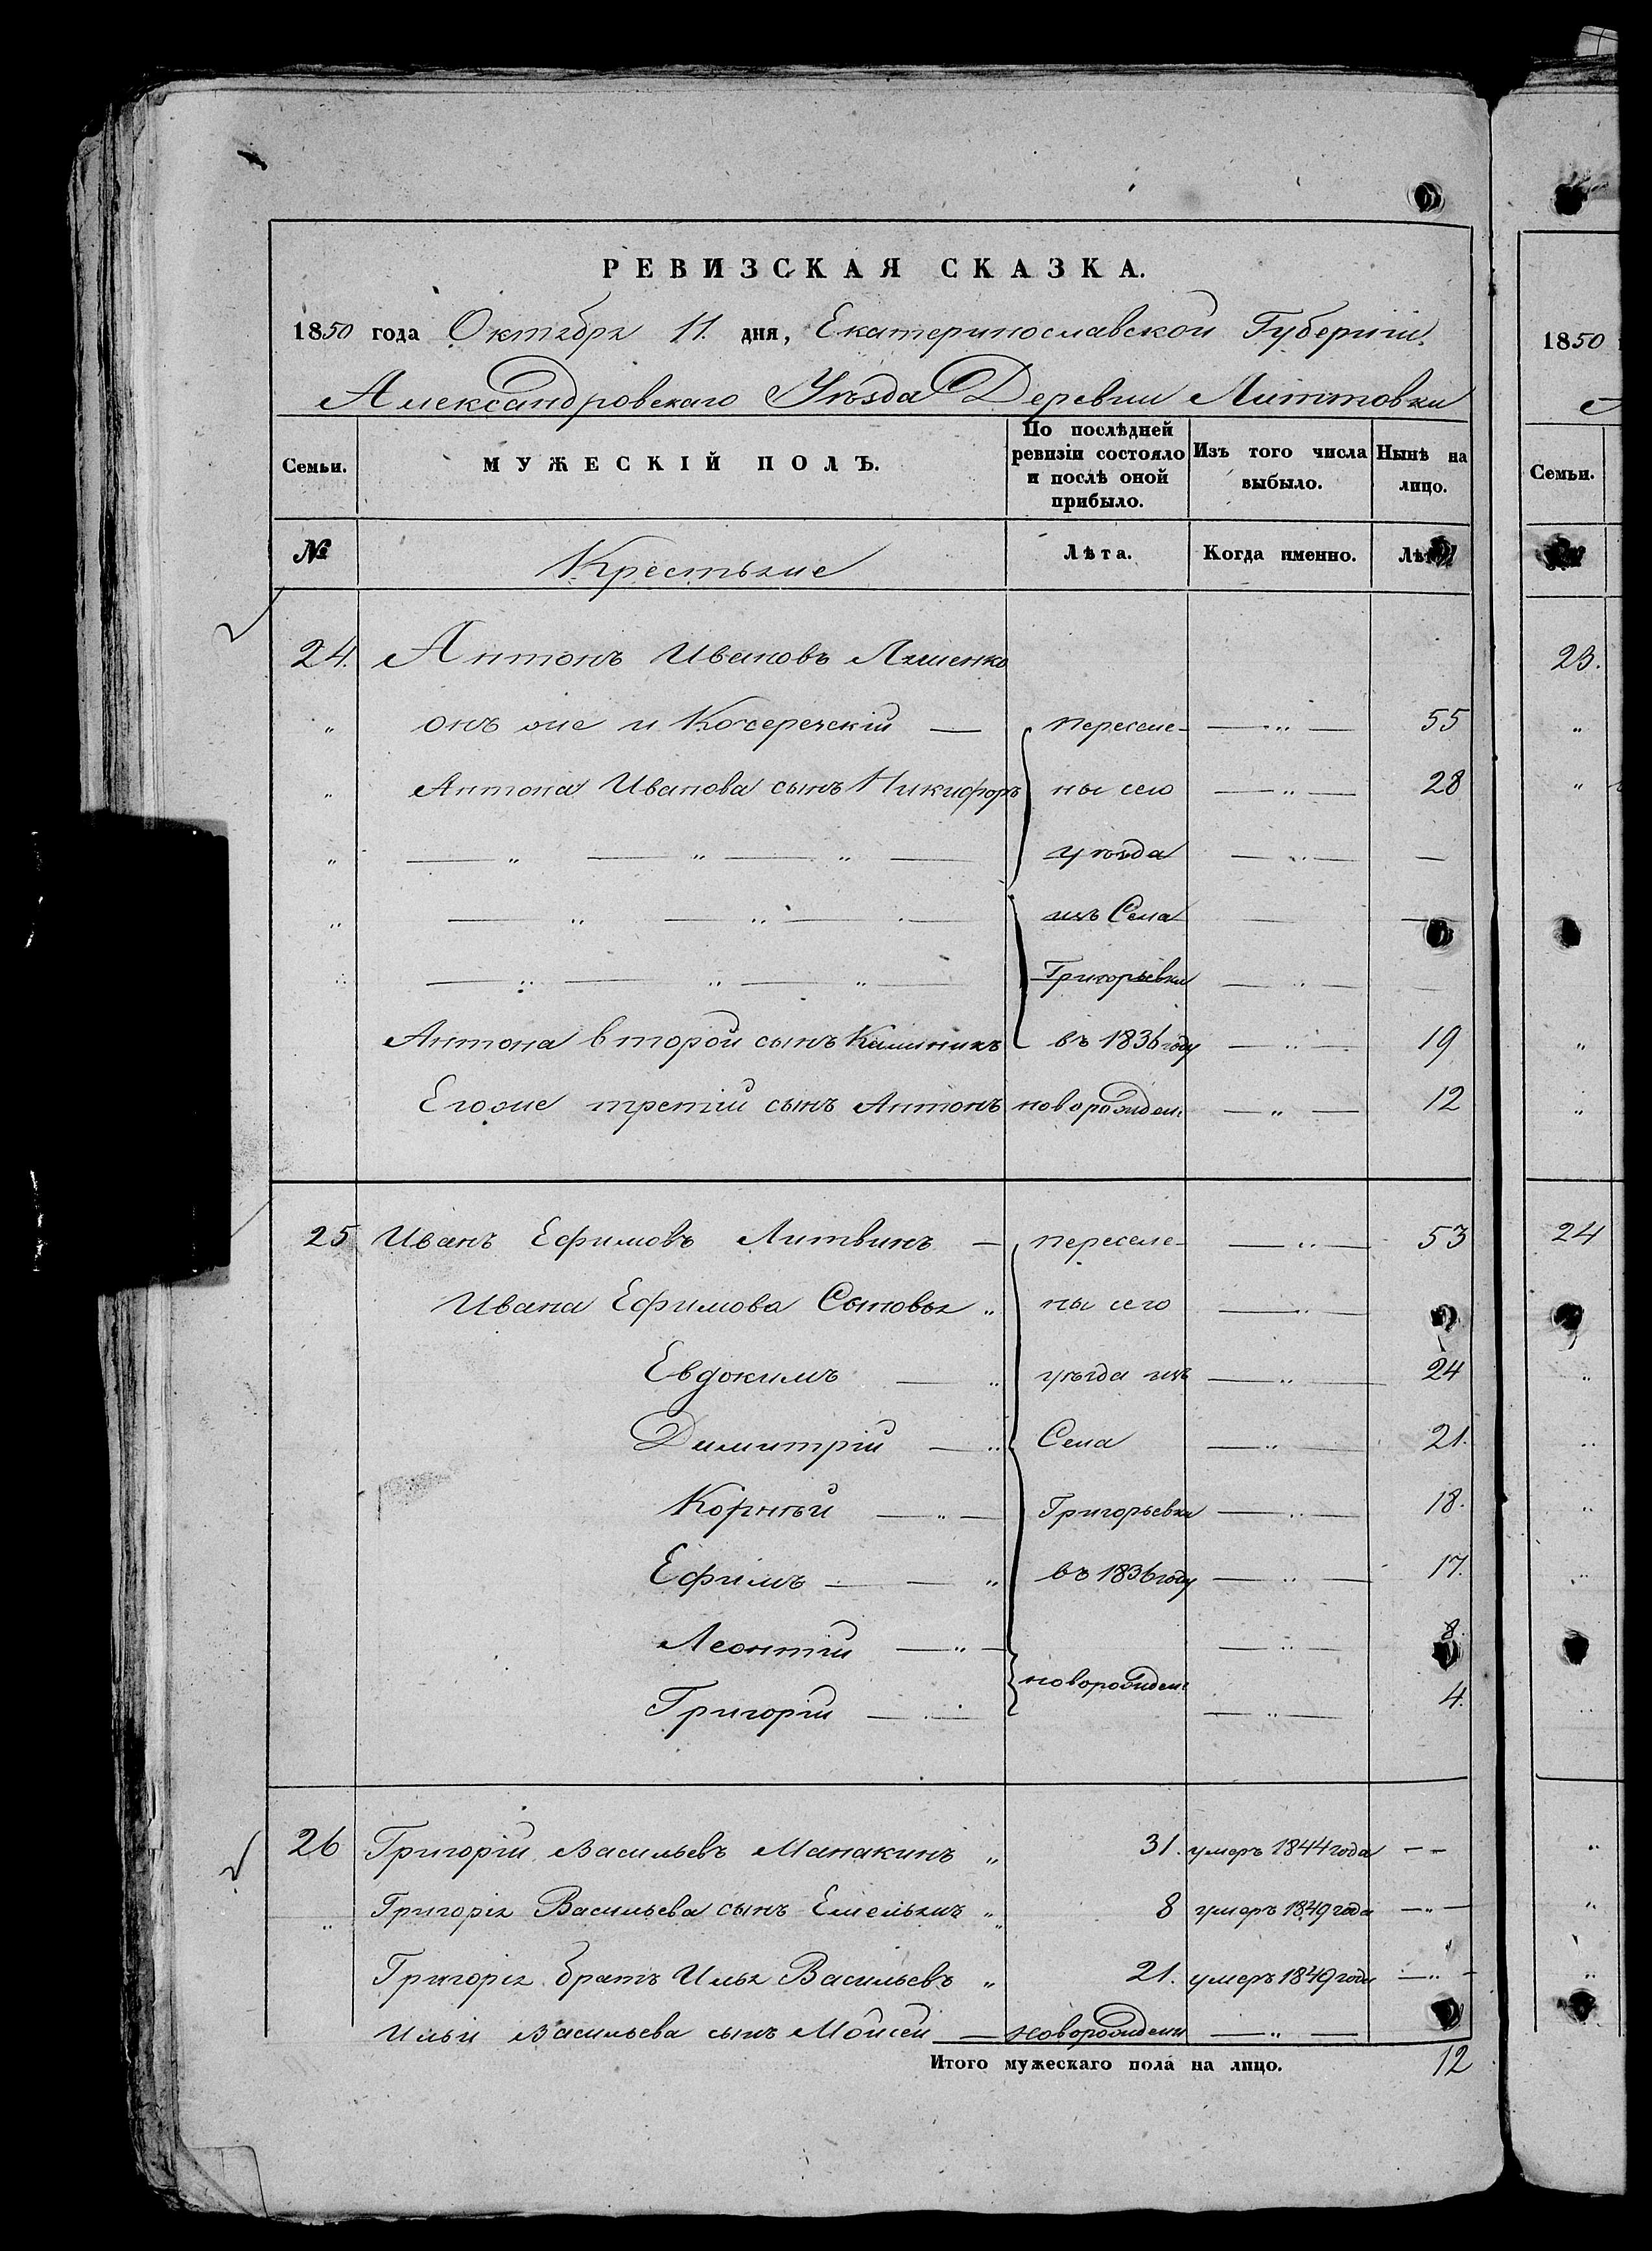 РЕВИЗСКАЯ СКАЗКА.
1850 года Октября 11. дня, Екатеринославской Губерніи.
Александровскаго Уѣзда Деревни
Семьи. МУЖЕСКІЙ ПОЛЪ. По послѣдней ревизіи состояло и послѣ оной прибыло. Изъ того числа выбыло. Нынѣ на лицо.
№ Крестьяне Лѣта. Когда именно. Лѣта
24. Антонъ Ивановъ
" онъ же и Кочережскій — переселе- —"— 55
" Антона Иванова сынъ Никифоръ ны сего —"— 28
" — " — " — " — уѣзда —"— —
" — " — " — изъ Села — —
" — " — " — " — Григорьевки —"— —
Антона второй сынъ въ 1836 году —"— 19
Егоже третій сынъ Антонъ новорожден: —"— 12
25 Иванъ Ефимовъ Литвинъ — переселе- —"— 53
Ивана Ефимова Сыновья " ны сего —"—
Евдокимъ —" уѣзда изъ —"— 24
Димитрій —" Села —"— 21.
Корнѣй —"— Григорьевки —"— 18.
Ефимъ — — " въ 1836 году —"— 17.
Леонтій —"— —"— 8.
новорожден:
Григорій —"— —"— 4.
26 Григорій Васильевъ Манакинъ " 31. умеръ 1844 года – –
" Григорія Васильева сынъ Емельянъ " 8 умеръ 1849 года —"—
Григорія братъ Илья Васильевъ " 21. умеръ 1849 года —"–
Ильи Васильева сынъ Моисей — новорожден —"—
Итого мужескаго пола на лицо. 12
1850
Семьи.
23.
"
"
"
"
24
"
"
"
"
"
"
"